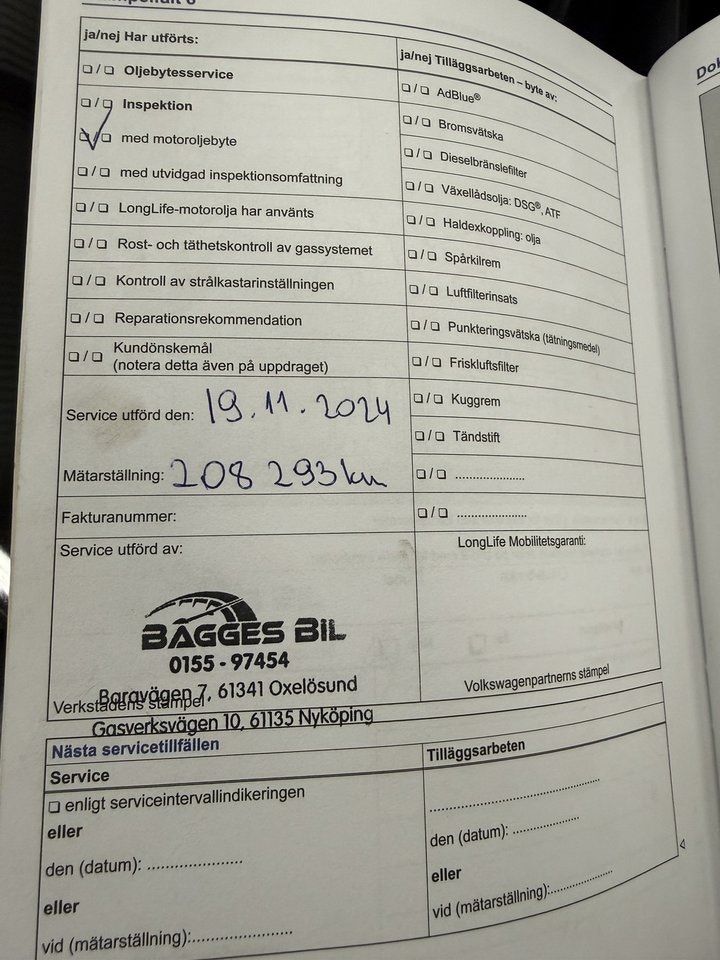 ja/nej Har utförts:
☐ / ☐ Oljebytesservice
☐ / ☐ Inspektion
☑ / ☐ med motoroljebyte
☐ / ☐ med utvidgad inspektionsomfattning
☐ / ☐ LongLife-motorolja har använts
☐ / ☐ Rost- och täthetskontroll av gassystemet
☐ / ☐ Kontroll av strålkastarinställningen
☐ / ☐ Reparationsrekommendation
☐ / ☐ Kundönskemål
(notera detta även på uppdraget)
Service utförd den: 19.11.2024
Mätarställning: 208 293 km
Fakturanummer:
Service utförd av:
BAGGES BIL
0155 - 97454
Baravägen 7, 61341 Oxelösund
Verkstadens stämpel
Gasverksvägen 10, 61135 Nyköping
ja/nej Tilläggsarbeten – byte av:
☐ / ☐ AdBlue®
☐ / ☐ Bromsvätska
☐ / ☐ Dieselbränslefilter
☐ / ☐ Växellådsolja: DSG®, ATF
☐ / ☐ Haldexkoppling: olja
☐ / ☐ Spårkilrem
☐ / ☐ Luftfilterinsats
☐ / ☐ Punkteringsvätska (tätningsmedel)
☐ / ☐ Friskluftsfilter
☐ / ☐ Kuggrem
☐ / ☐ Tändstift
☐ / ☐ ......................
☐ / ☐ ......................
LongLife Mobilitetsgaranti:
Volkswagenpartnerns stämpel
Nästa servicetillfällen
Service
☐ enligt serviceintervallindikeringen
eller
den (datum): ......................
eller
vid (mätarställning):......................
Tilläggsarbeten
......................
den (datum): ......................
eller
vid (mätarställning):......................